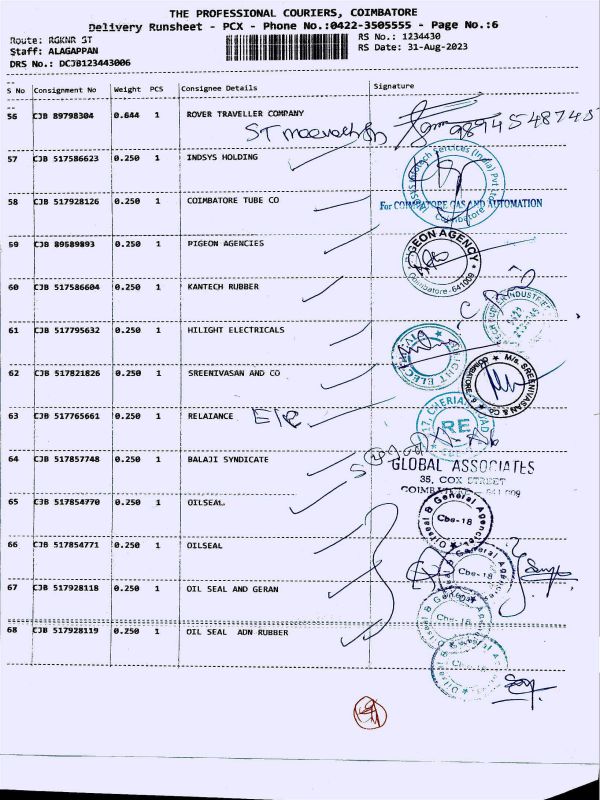 THE PROFESSIONAL COURIERS, COIMBATORE
Delivery Runsheet - PCX - Phone No.:0422-3505555 - Page No.:6
Route: RGKNR ST
RS No.: 1234430
Staff: ALAGAPPAN
RS Date: 31-Aug-2023
DRS No.: DCJB123443006
S No Consignment No Weight PCS Consignee Details Signature
56 CJB 89798304 0.644 1 ROVER TRAVELLER COMPANY
57 CJB 517586623 0.250 1 INDSYS HOLDING
58 CJB 517928126 0.250 1 COIMBATORE TUBE CO
For COIMBATORE GAS AND AUTOMATION
59 CJB 89589893 0.250 1 PIGEON AGENCIES
PIGEON AGENCY
Coimbatore - 641009
60 CJB 517586604 0.250 1 KANTECH RUBBER
61 CJB 517795632 0.250 1 HILIGHT ELECTRICALS
62 CJB 517821826 0.250 1 SREENIVASAN AND CO
M/s. SREENIVASAN & CO
COIMBATORE
63 CJB 517765661 0.250 1 RELAIANCE
RE
64 CJB 517857748 0.250 1 BALAJI SYNDICATE
GLOBAL ASSOCIATES
35, COX STREET
65 CJB 517854770 0.250 1 OILSEAL
Oilseal & General Agencies
Cbe-18
66 CJB 517854771 0.250 1 OILSEAL
Cbe-18
67 CJB 517928118 0.250 1 OIL SEAL AND GERAN
Cbe-18
68 CJB 517928119 0.250 1 OIL SEAL ADN RUBBER
Cbe-18